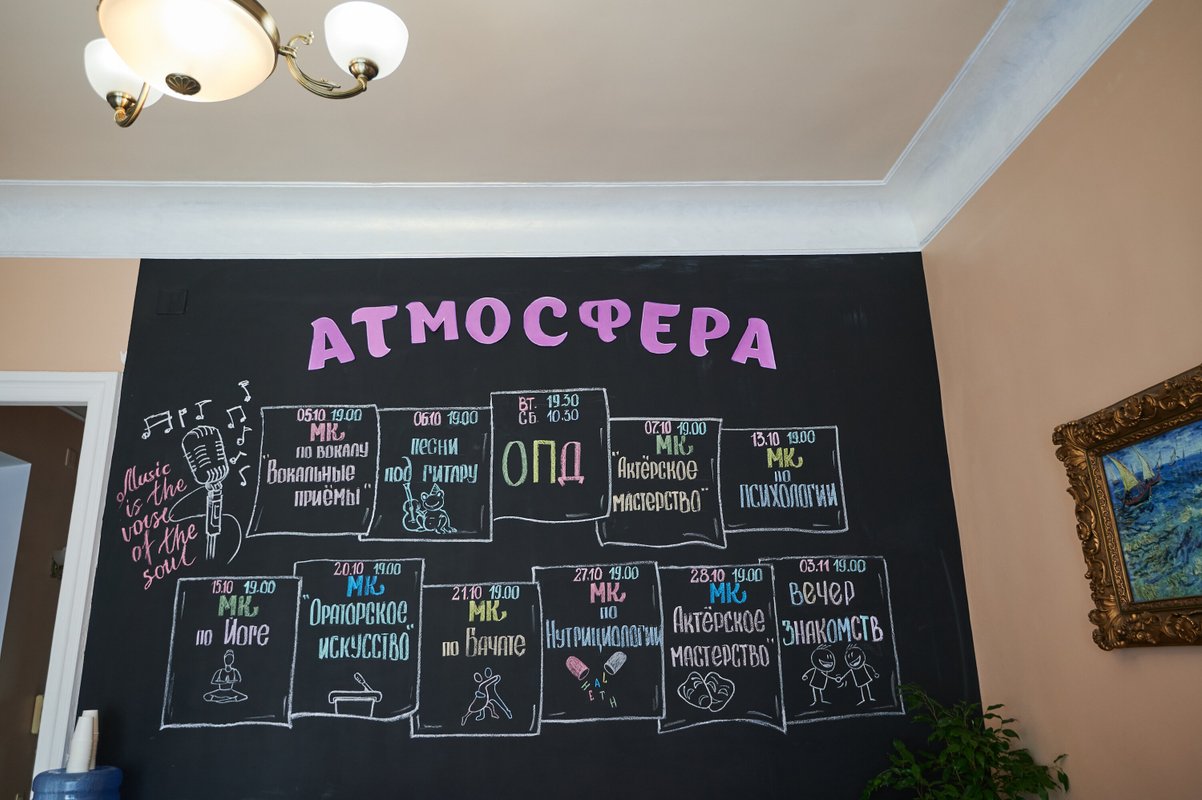 АТМОСФЕРА
Music
is the
voise
of the
soul
05.10 19.00
МК
по вокалу
"Вокальные
приёмы"
06.10 19.00
песни
под гитару
ВТ. 19.30
СБ. 10.30
ОПД
07.10 19.00
МК
"Актёрское
мастерство"
13.10 19.00
МК
по
психологии
15.10 19.00
МК
по Йоге
20.10 19.00
МК
"Ораторское
искусство"
21.10 19.00
МК
по Бачате
27.10 19.00
МК
по
Нутрициологии
HEALTH
28.10 19.00
МК
"Актёрское
мастерство"
03.11 19.00
Вечер
знакомств